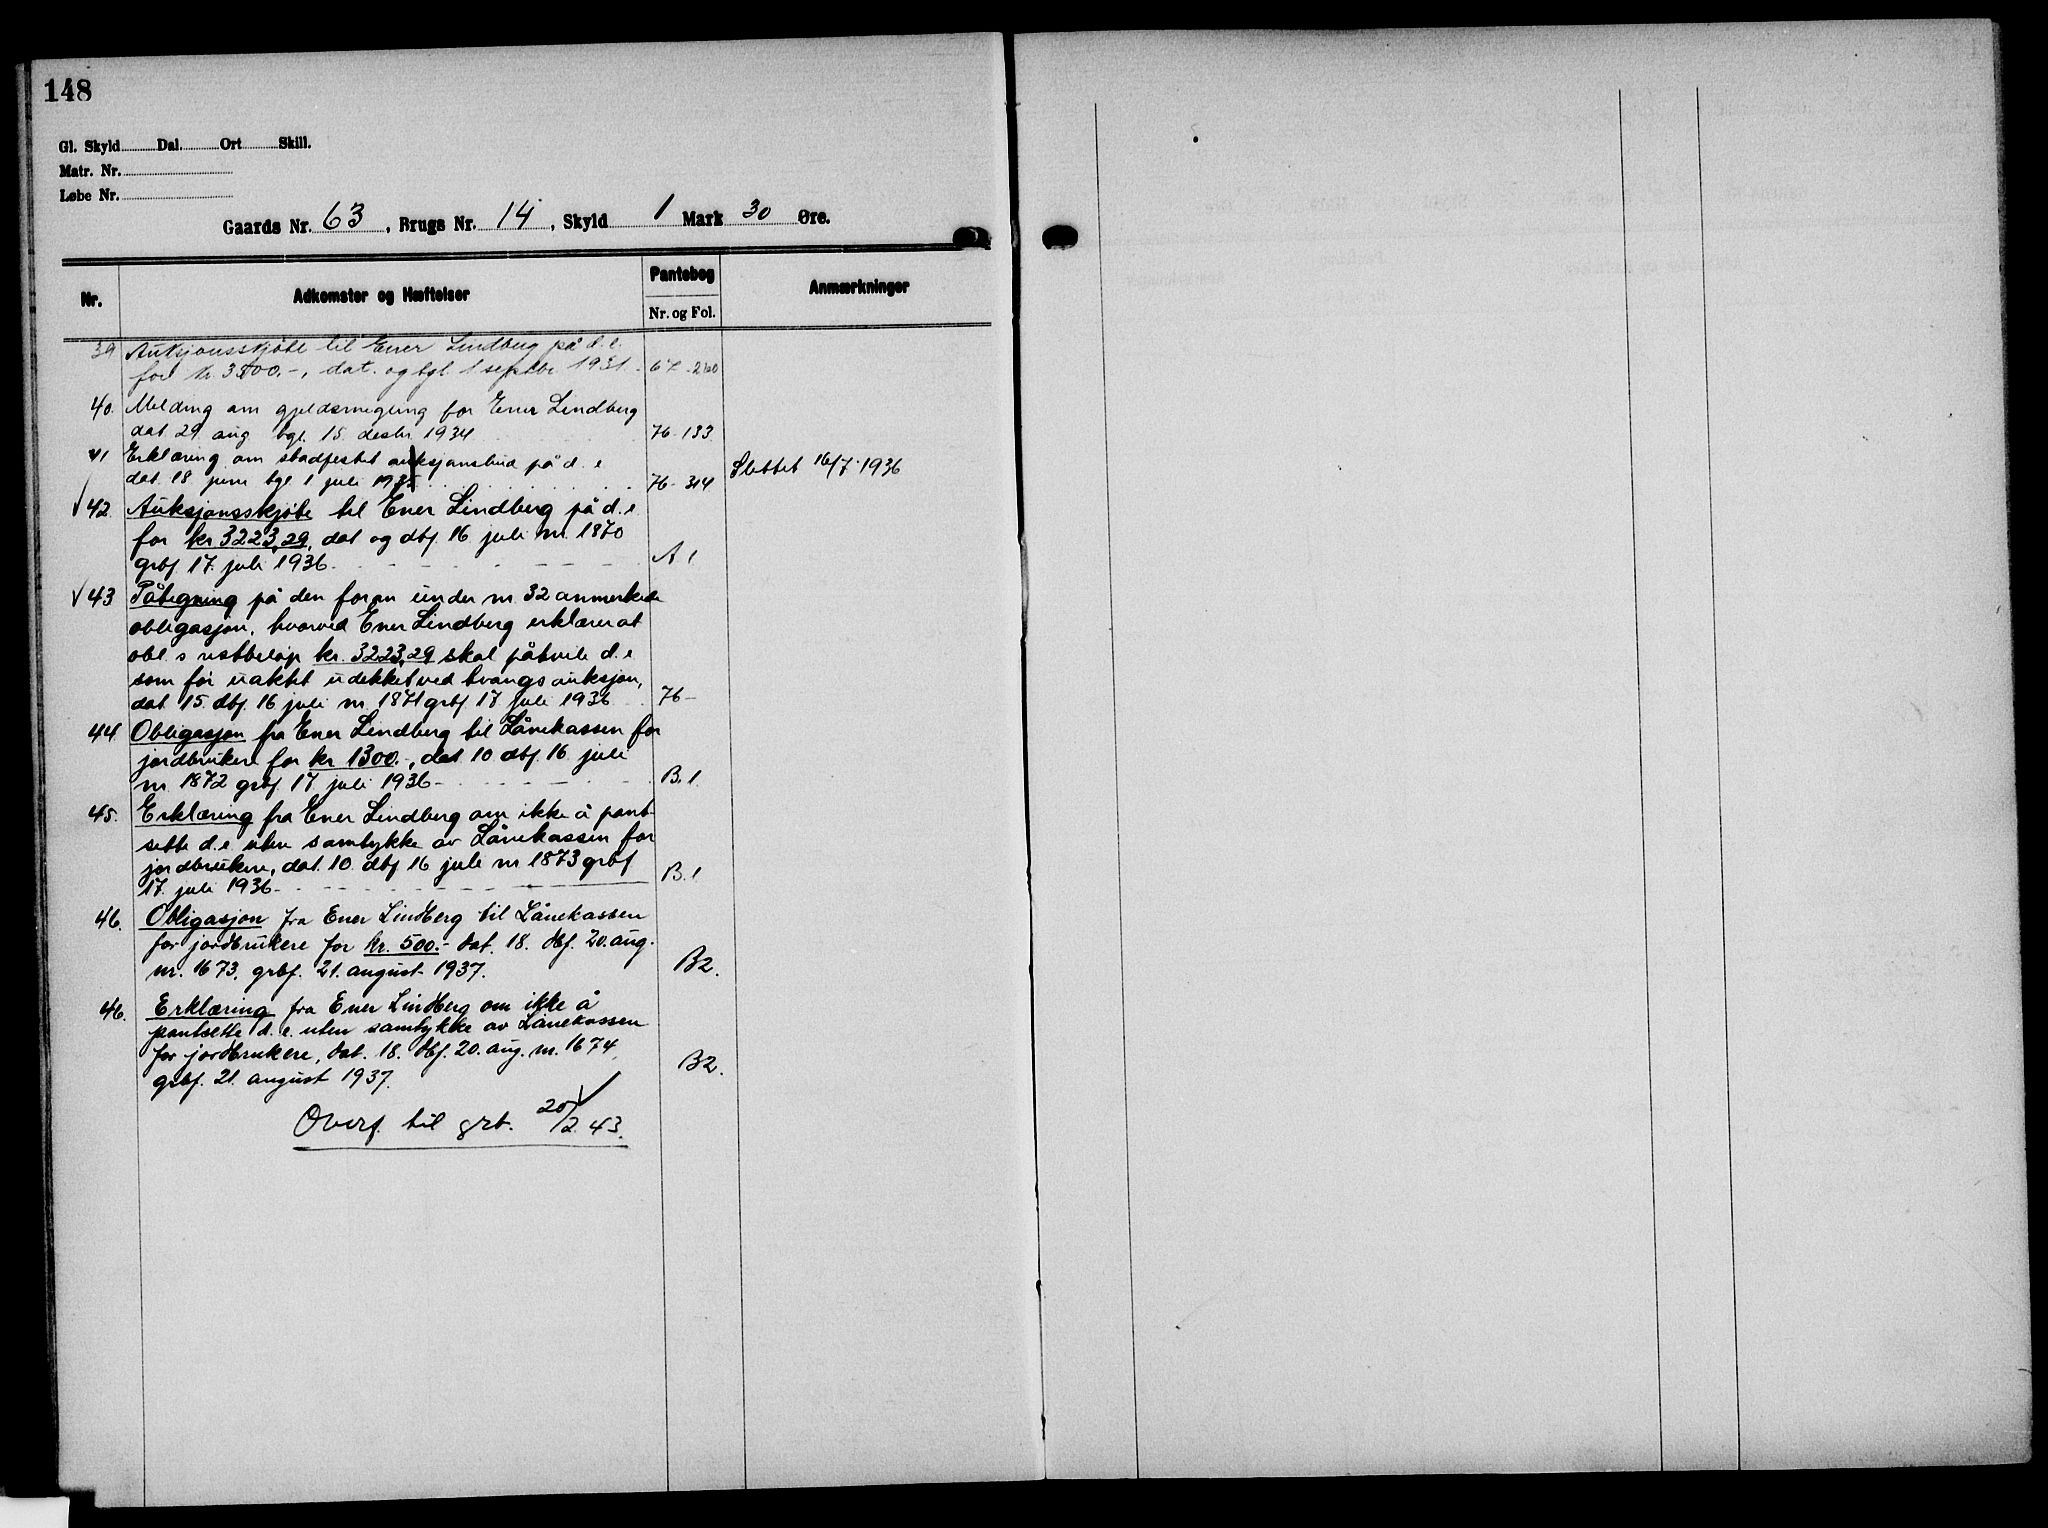 148
Gl. Skyld Dal. Ort Skill.
Matr. Nr.
Løbe Nr.
Gaards Nr. 63, Brugs Nr. 14, Skyld 1 Mark 30 Øre.
Nr. Adkomster og Hæftelser Pantebog Nr. og Fol. Anmærkninger
39 Auksjonsskjøte til Ener Lindberg på d.e.
for kr. 3500.-, dat. og tgl. 1 septbr. 1931. 67-260
40. Melding om gjeldsmegling for Ener Lindberg
dat 29 aug tgl. 15. desbr. 1934 76-133
41 Erklæring om stadfestet auksjonsbud på d.e
dat. 18 juni tgl 1 juli 1935 76-314 Slettet 16/7-1936
√ 42. Auksjonsskjøte til Ener Lindberg på d.e
for kr 3223,29, dat og dbf. 16 juli nr. 1870
grbf. 17. juli 1936. A 1
√ 43 Påtegning på den foran under nr. 32 anmerkede
obligasjon, hvorved Ener Lindberg erklærer at
obl.s restbeløp kr. 3223,29 skal påhvile d.e
som før uaktet udekket ved tvangsauksjon,
dat. 15. dbf. 16 juli nr. 1871 grbf 17 juli 1936 76-
44. Obligasjon fra Ener Lindberg til Lånekassen for
jordbrukere for kr 1300.-, dat. 10 dbf. 16 juli
nr. 1872 grbf. 17 juli 1936- B.1.
45. Erklæring fra Ener Lindberg om ikke å pant-
sette d.e uten samtykke av Lånekassen for
jordbrukere, dat. 10. dbf 16 juli nr 1873 grbf
17. juli 1936- B.1
46. Obligasjon fra Ener Lindberg til Lånekassen
for jordbrukere for kr. 500.- dat. 18. dbf. 20. aug.
nr. 1673, grbf. 21. august 1937. B2.
46. Erklæring fra Ener Lindberg om ikke å
pantsette d.e. uten samtykke av Lånekassen
for jordbrukere, dat. 18. dbf. 20. aug. nr. 1674,
grbf. 21. august 1937. B2.
Overf. til grb. 20/2.43.